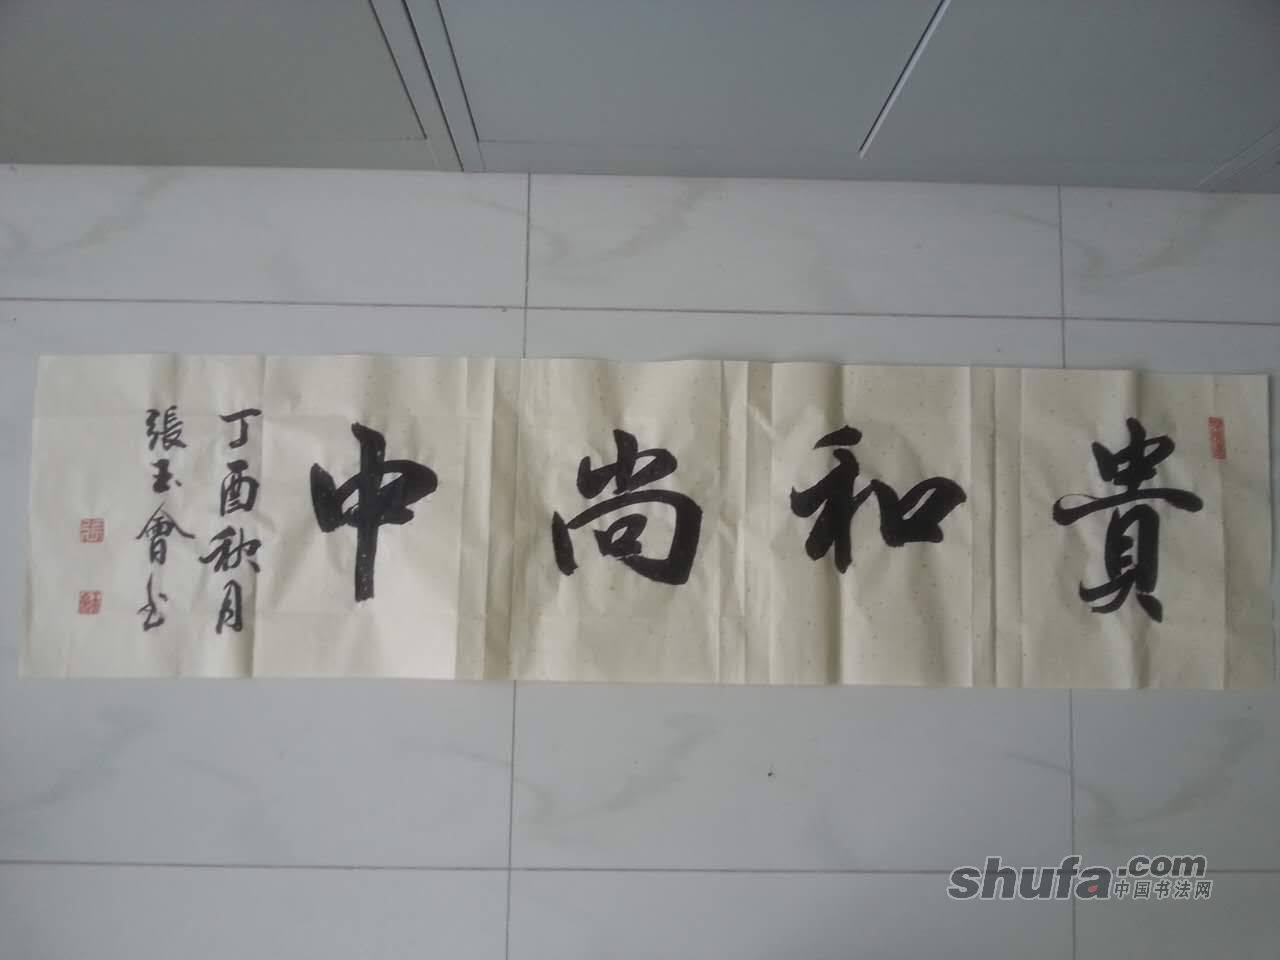 貴和尚中
丁酉秋月
張玉會书
shufa.com
中国书法网